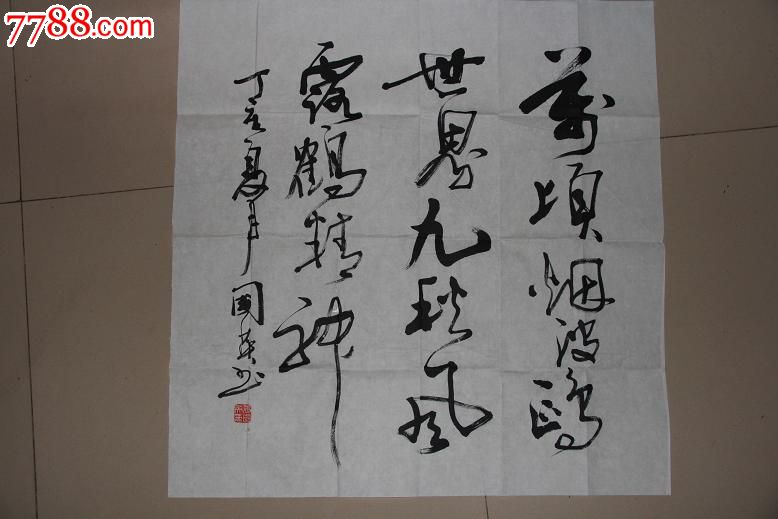 7788.com
萬頃烟波鷗
世界九秋風
露鶴精神
丁亥夏月國英书